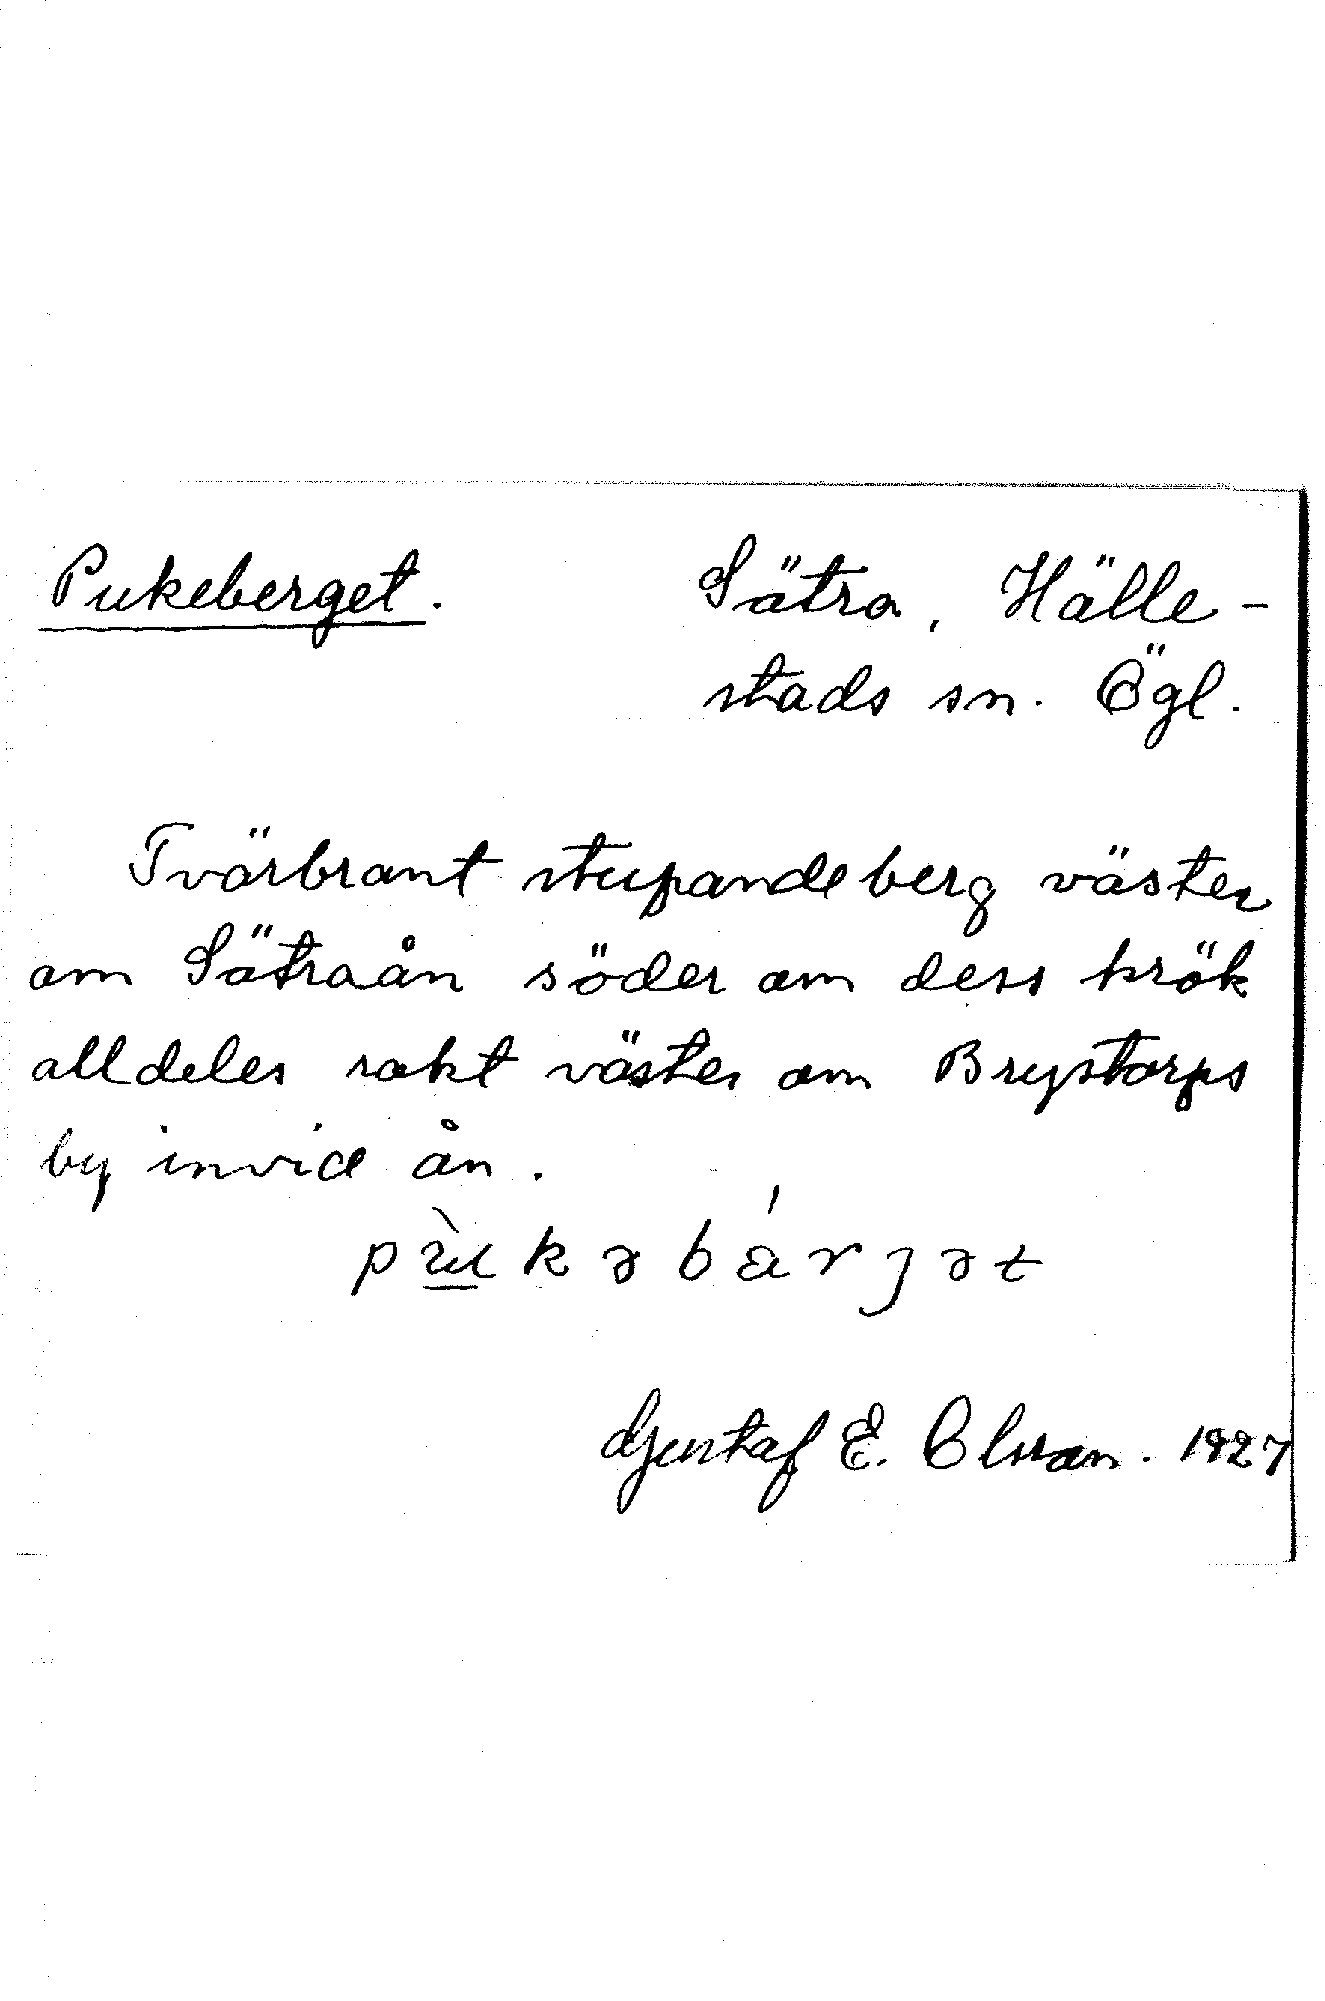 Pukeberget. Sätra, Hälle-
stads sn. Ögl.
Tvärbrant stupande berg väster
om Sätraån söder om dess krök
alldeles rakt väster om Brystorps
by invid ån.
Gustaf E. Olsson. 1927